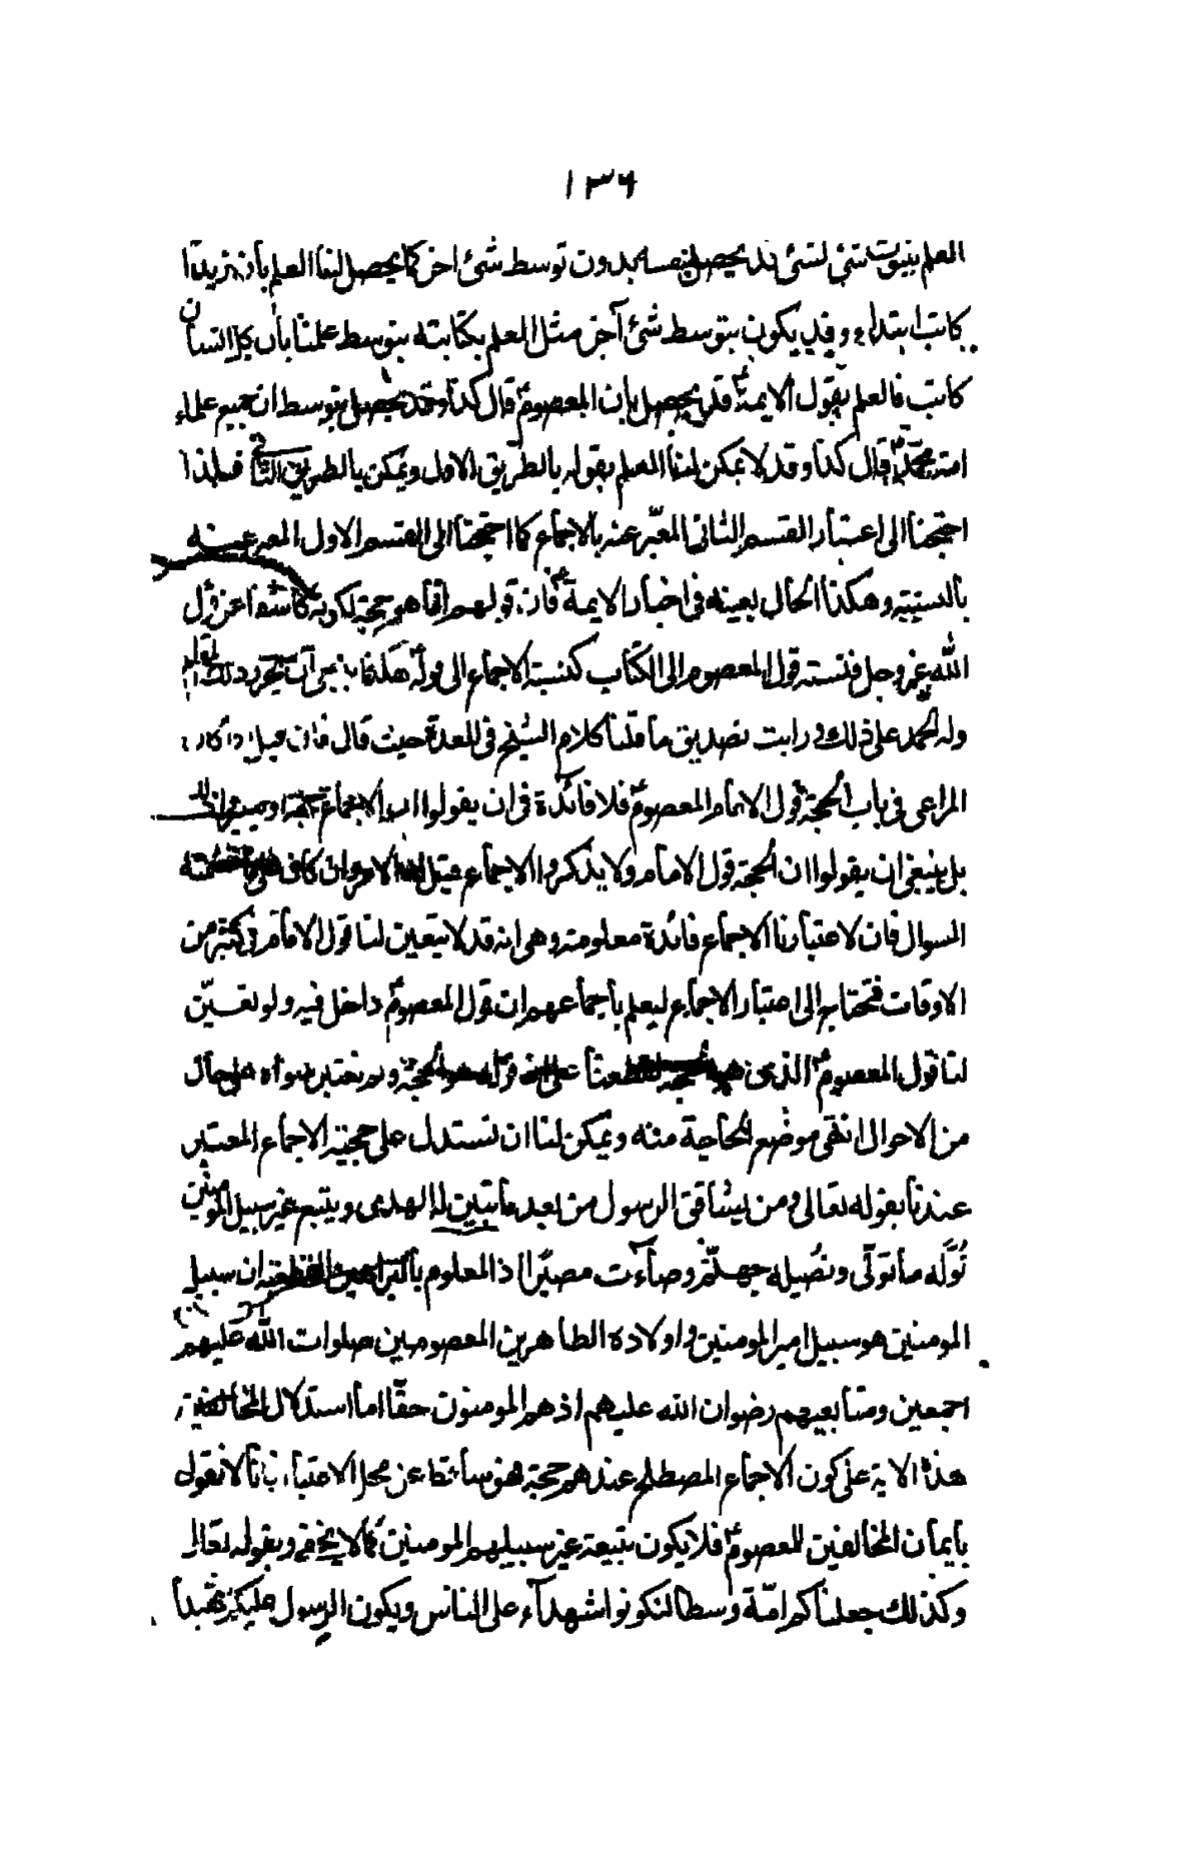 ١٣٦
العلم بثبوت شئ لشئ قد يحصل بنفسه بدون توسط شئ اخر كما يحصل لنا العلم بأن زيدًا
كاتب ابتداء وقد يكون بتوسط شئ آخر مثل العلم بكتابته بتوسط علمنا بأن كل انسان
كاتب فالعلم بقول الايمة قد يحصل بأن المعصوم قال كذا وقد يحصل بتوسط ان جميع علماء
امة محمد قال كذا وقد لا يمكن لنا العلم بقوله بالطريق الاول ويمكن بالطريق الثاني فلهذا
احتجنا الى اعتبار القسم الثاني المعبّر عنه بالاجماع كما احتجنا الى القسم الاول المعبر عنه
بالسنة وهكذا الحال بعينه في اخبار الايمة فان قولهم انما هو حجة لكونه كاشفا عن قول
الله عز وجل فنسبة قول المعصوم الى الكتاب كنسبة الاجماع الى قوله هكذا
وله الحمد على ذلك ورايت تصديق ما قلنا كلام الشيخ في العدة حيث قال فان قيل اذا كان
المراعي في باب الحجة قول الامام المعصوم فلا فائدة في ان يقولوا ان الاجماع حجة او
بل ينبغي ان يقولوا ان الحجة قول الامام ولا يذكروا الاجماع قيل له الامر وان كان على ما تضمنه
السوال فان لاعتبارنا الاجماع فائدة معلومة وهي انه قد لا يتعين لنا قول الامام في كثير من
الاوقات فنحتاج الى اعتبار الاجماع ليعلم بأجماعهم ان قول المعصوم داخل فيه ولو تعيّن
لنا قول المعصوم الذي هو الحجة لقطعنا على ان قوله هو الحجة ولم نعتبر سواه على حال
من الاحوال انتفى موضع الحاجة منه ويمكن لنا ان نستدل على حجية الاجماع المعتبر
عندنا بقوله تعالى ومن يشاقق الرسول من بعد ما تبين له الهدى ويتبع غير سبيل المومنين
نُوَلّه ما تولّى ونُصله جهنّم وسآءت مصيرًا اذ المعلوم بالبراهين القطعية ان سبيل
المومنين هو سبيل امير المومنين واولاده الطاهرين المعصومين صلوات الله عليهم
اجمعين ومتابعيهم رضوان الله عليهم اذ هم المومنون حقّا اما استدلال المخالفين
هذه الاية على كون الاجماع المصطلح عندهم حجة فهو ساقط عن محل الاعتبار لانا لا نقول
بأيمان المخالفين للمعصوم فلا يكون تبيعة غير سبيلهم المومنين كما لا يخفى وبقوله تعالى
وكذلك جعلناكم امّة وسطا لتكونوا شهدآء على الناس ويكون الرسول عليكم شهيدا